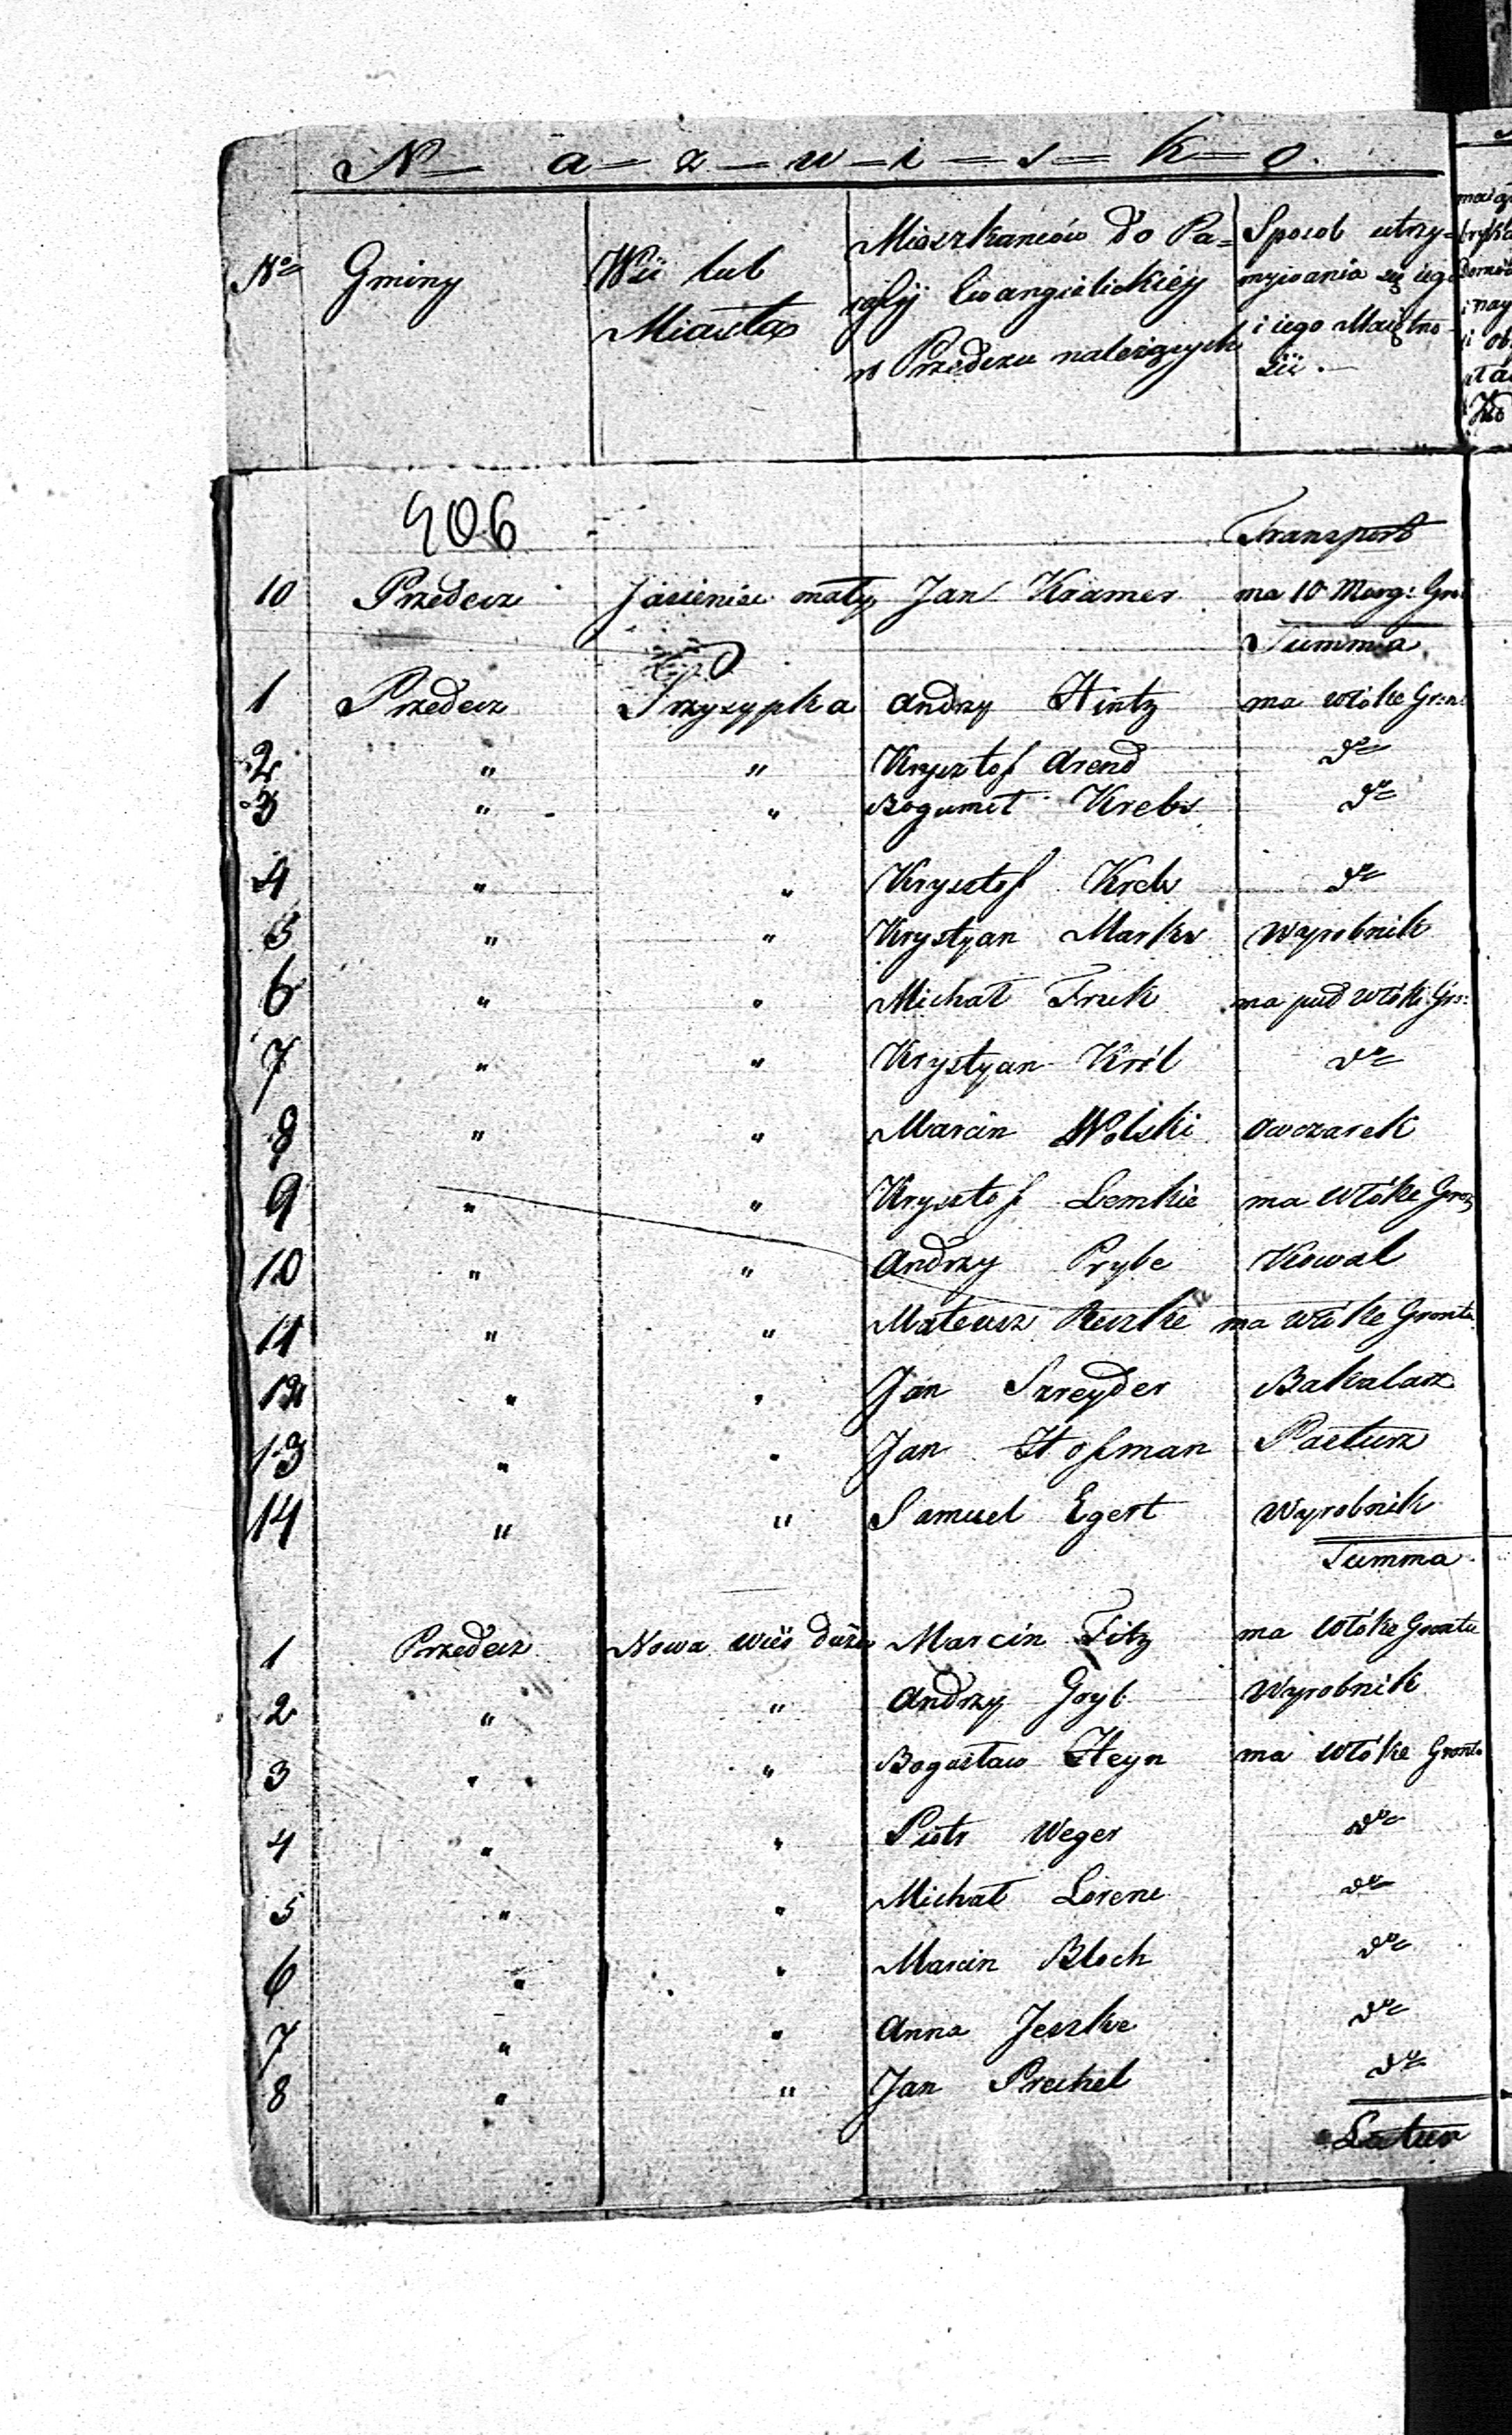 N – a – z – w – i – s – k – o.
Nro Gminy Wsi lub Miasta Mieszkancow do Pa= rafij Ewangielickiéy w Przedczu należących Sposob utrzy= mywania się iego i iego Maiętno scii.
406 Transport
10 Przedecz Jasieniec mały Jan Kramer ma 10 Morg: Gru
Summa
1 Przedecz Przysypka Andrzy Hintz ma włóke Gron
2 " " Krysztof Arend do
3 " " Bogumił Krebs do
4 " " Krysztof Krebs do
5 " " Krystyan Marks Wyrobnik
6 " " Michał Truk ma puł włóki Gro:
7 " " Krystyan Król do
8 " " Marcin Wolski Owczarek
9 " " Krysztof Lemkie ma włóke Gron
10 " " Andrzy Prybe Kowal
11 " " Mateusz Reszke ma włóke Grontu
12 " " Jan Szreyder Bakalarz
13 " " Jan Hofman Pasturz
14 " " Samuel Egert Wyrobnik
Summa
1 Przedecz Nowa wieś duża Marcin Titz ma włóke Grontu
2 " " Andrzy Gryb Wyrobnik
3 " " Bogusław Heyn ma włóke Grontu
4 " " Piotr Weger do
5 " " Michał Lorenc do
6 " " Marcin Bloch do
7 " " Anna Jeszke do
8 " " Jan Prechel do
Latus